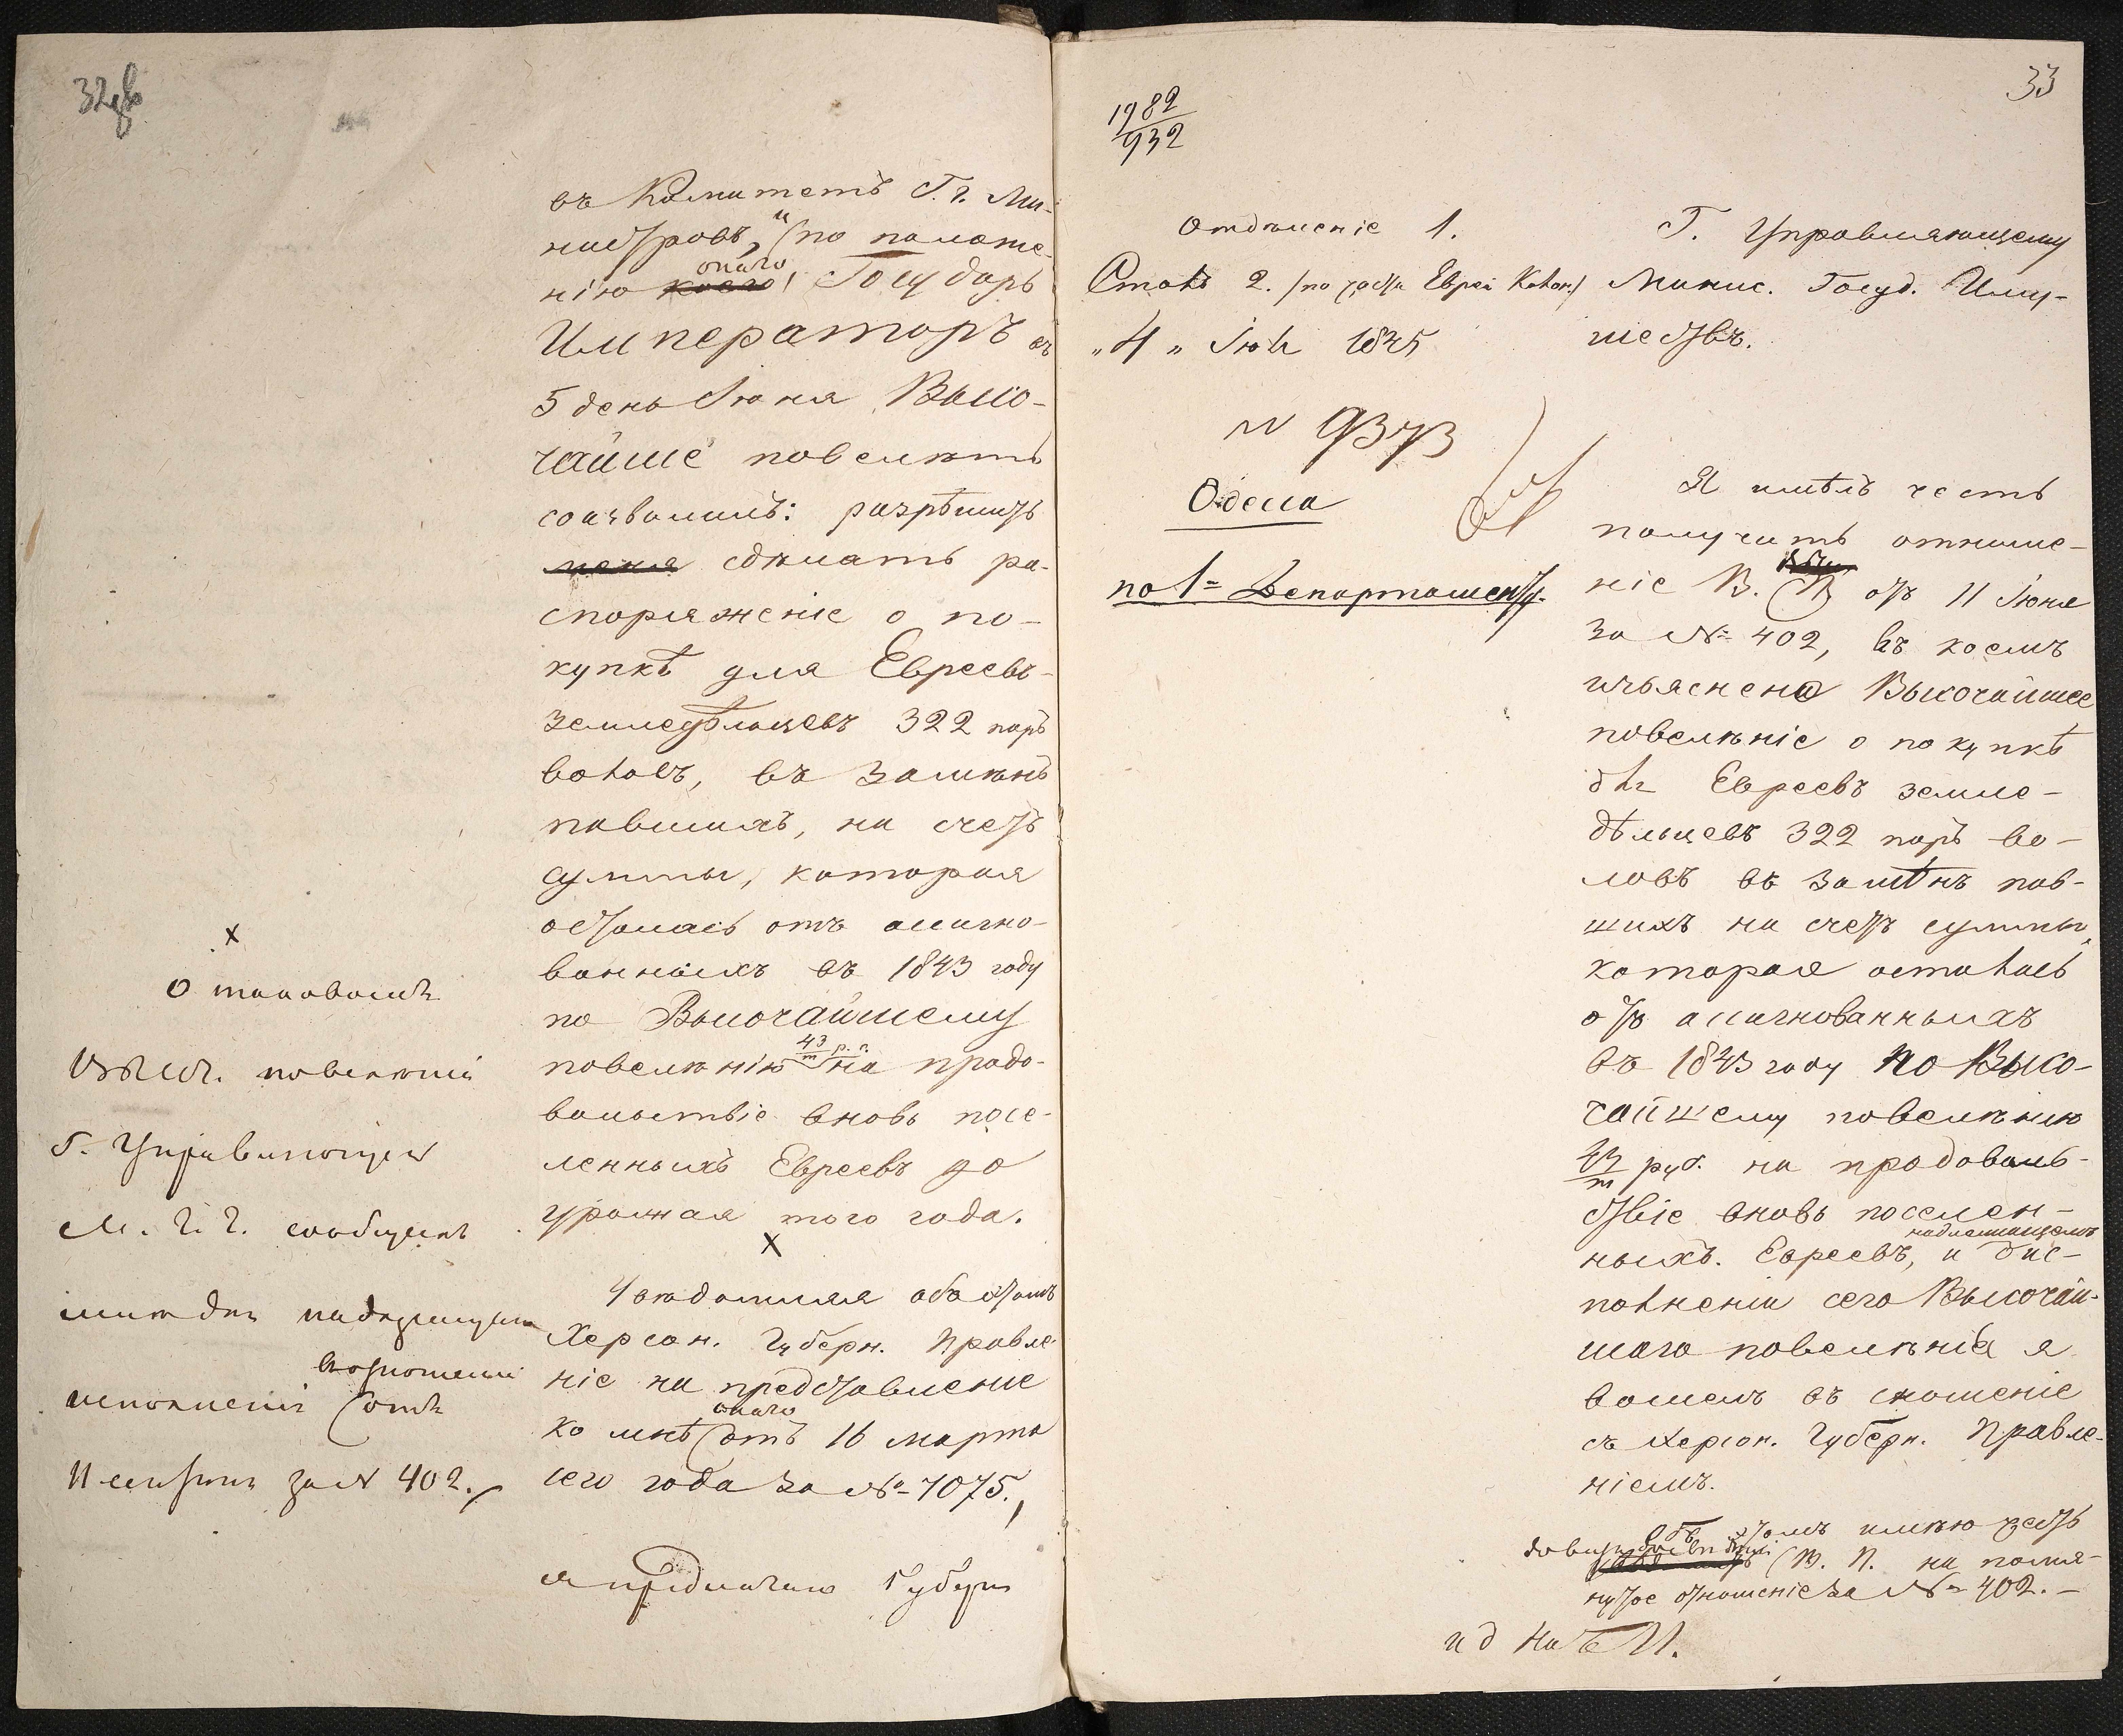 32об
въ Комитетъ Г. г. Ми-
нистровъ, и (по положе-
нію коего онаго) Государь
Императоръ въ
5 день Іюня Высо-
чайше повелѣть
соизволилъ: разрѣшить
меня сдѣлать ра-
споряженіе о по-
купкѣ для Евреевъ-
земледѣльцевъ 322 паръ
воловъ, въ замѣнъ
павшихъ, на счетъ
суммы, которая
осталась отъ ассигно-
ванныхъ въ 1843 году
по Высочайшему
повелѣнію 43/т р. с. на продо-
вольствіе вновь посе-
ленныхъ Евреевъ до
урожая того года.
х
Увѣдомляя объ этомъ
Херсон. Губерн. Правле-
ніе на представленіе
ко мнѣ онаго отъ 16 марта
сего года за № 7075.,
я предлагаю Губерн
х
О таковомъ
Высоч. повелѣніи
Г. Управляющій
М. Г. И. сообщилъ
мнѣ для надлежащаго
исполненія въ отношеніи отъ
11 за № 402.
33
1982
932
Отдѣленіе 1.
Столъ 2. (по части Еврей Колон.)
"4" Іюля 1845
№ 9373
Одесса
по 1= Департаменту.
Г. Управляющему
Минис. Госуд. Иму-
ществъ.
Я имѣлъ честь
получить отноше-
ніе В. П. отъ 11 Іюня
за № 402, въ коемъ
изъяснено Высочайшее
повелѣніе о покупкѣ
для Евреевъ земле-
дѣльцевъ 322 паръ во-
ловъ въ замѣнъ пав-
шихъ на счетъ суммы,
которая осталась
отъ ассигнованныхъ
въ 1843 году по Высо-
чайшему повелѣнію
43/т руб. на продоволь-
ствіе вновь поселен-
ныхъ Евреевъ, и о надлежащемъ ис-
полненіи сего Высочай-
шаго повелѣнія я
вошелъ въ сношеніе
съ Херсон. Губерн. Правле-
ніемъ.
Объ этомъ имѣю честь
В. П. на помя-
нутое отношеніе за № 402. –